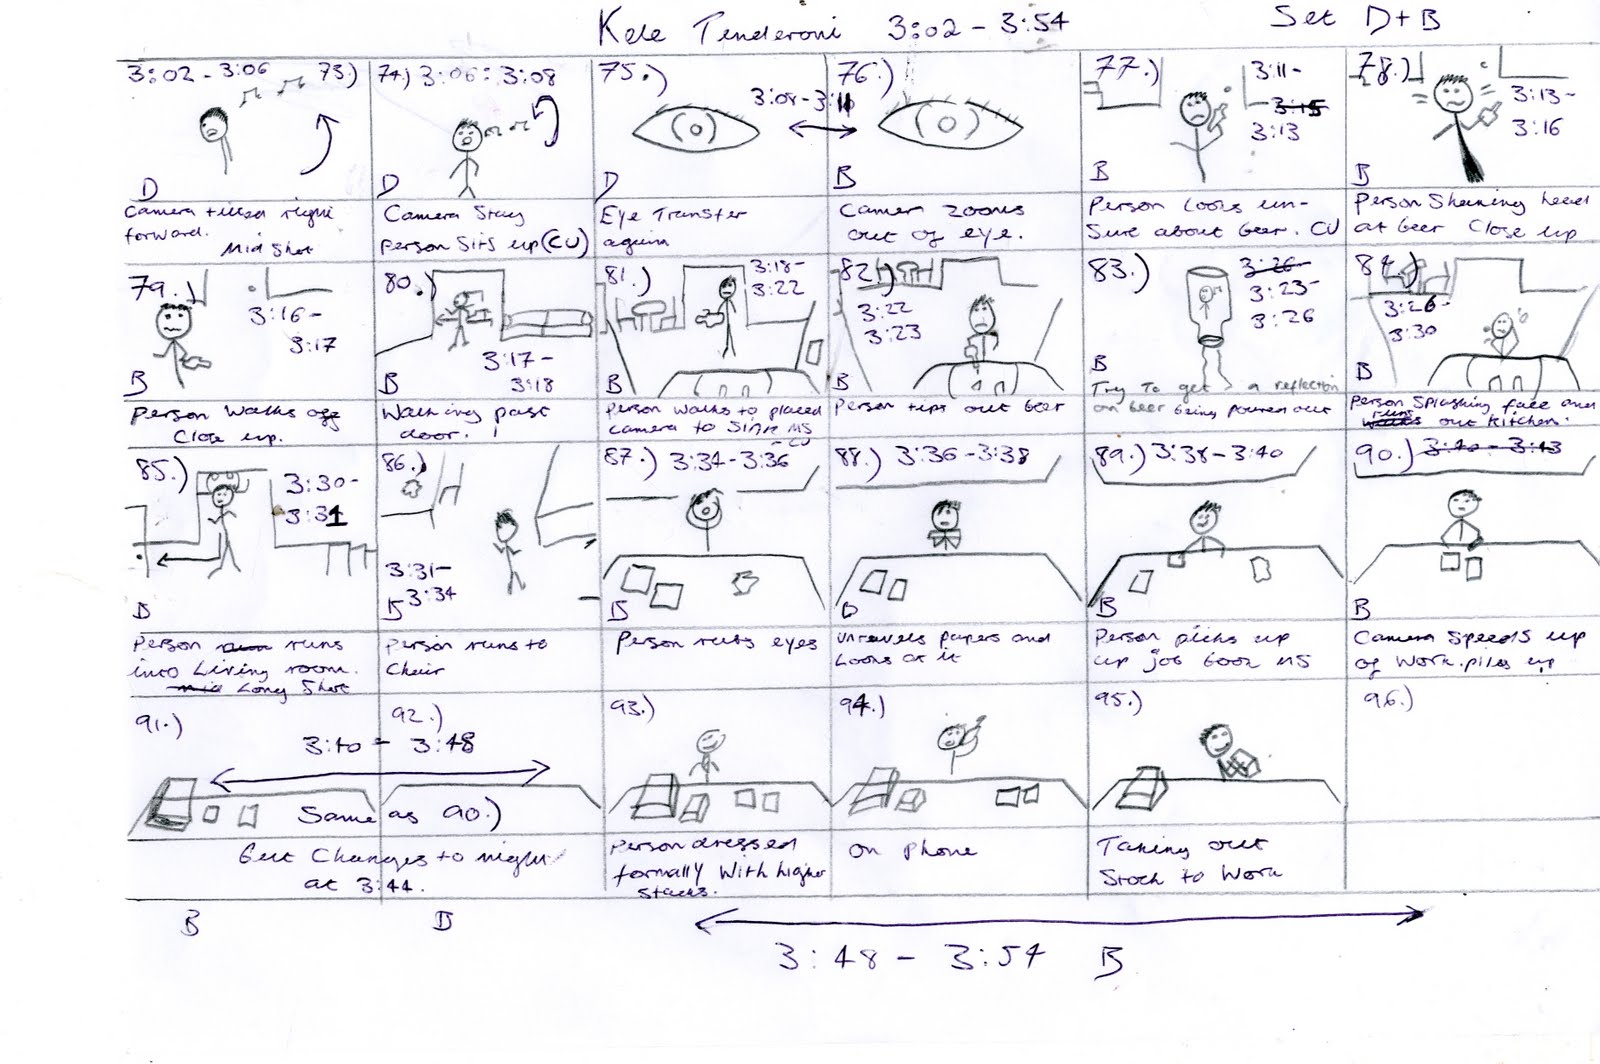 Kele Tenderoni 3:02 - 3:54 Set D+B
3:02 - 3:06 73.)
D
Camera tilted right
forward.
Mid Shot
74.) 3:06 - 3:08
D
Camera Stay
person Sits up (CU)
75.)
3:08 - 3:10
D
Eye Transfer
again
76.)
B
Camera zooms
out of eye.
77.)
3:11-
3:15
3:13
B
Person looks un-
Sure about beer. CU
78.)
3:13-
3:16
B
Person Shaking head
at beer Close up
79.)
3:16-
3:17
B
Person Walks off
Close up.
80.)
3:17-
3:18
B
Walking past
door.
81.)
3:18-
3:22
B
Person walks to placed
camera to Sink MS
- CU
82.)
3:22
3:23
B
Person tips out beer
83.)
3:26-
3:23-
3:26
B
Try To get a reflection
on beer being poured out
84.)
3:26-
3:30
B
Person Splashing face and
runs out Kitchen.
85.)
3:30-
3:31
B
Person runs
into Living room.
Mid Long Shot
86.)
3:31-
3:34
B
Person runs to
Chair
87.) 3:34-3:36
B
Person rubs eyes
88.) 3:36-3:38
B
Unravels papers and
Looks at it
89.) 3:38-3:40
B
Person picks up
up job book MS
90.) 3:40-3:43
B
Camera Speeds up
of Work piles up
91.)
92.)
3:40 - 3:48
Same as 90.)
But Changes to night
at 3:44.
93.)
Person dressed
formally With higher
Stacks.
94.)
on phone
95.)
Taking out
Stock to Work
96.)
B
B
3:48 - 3:54 B